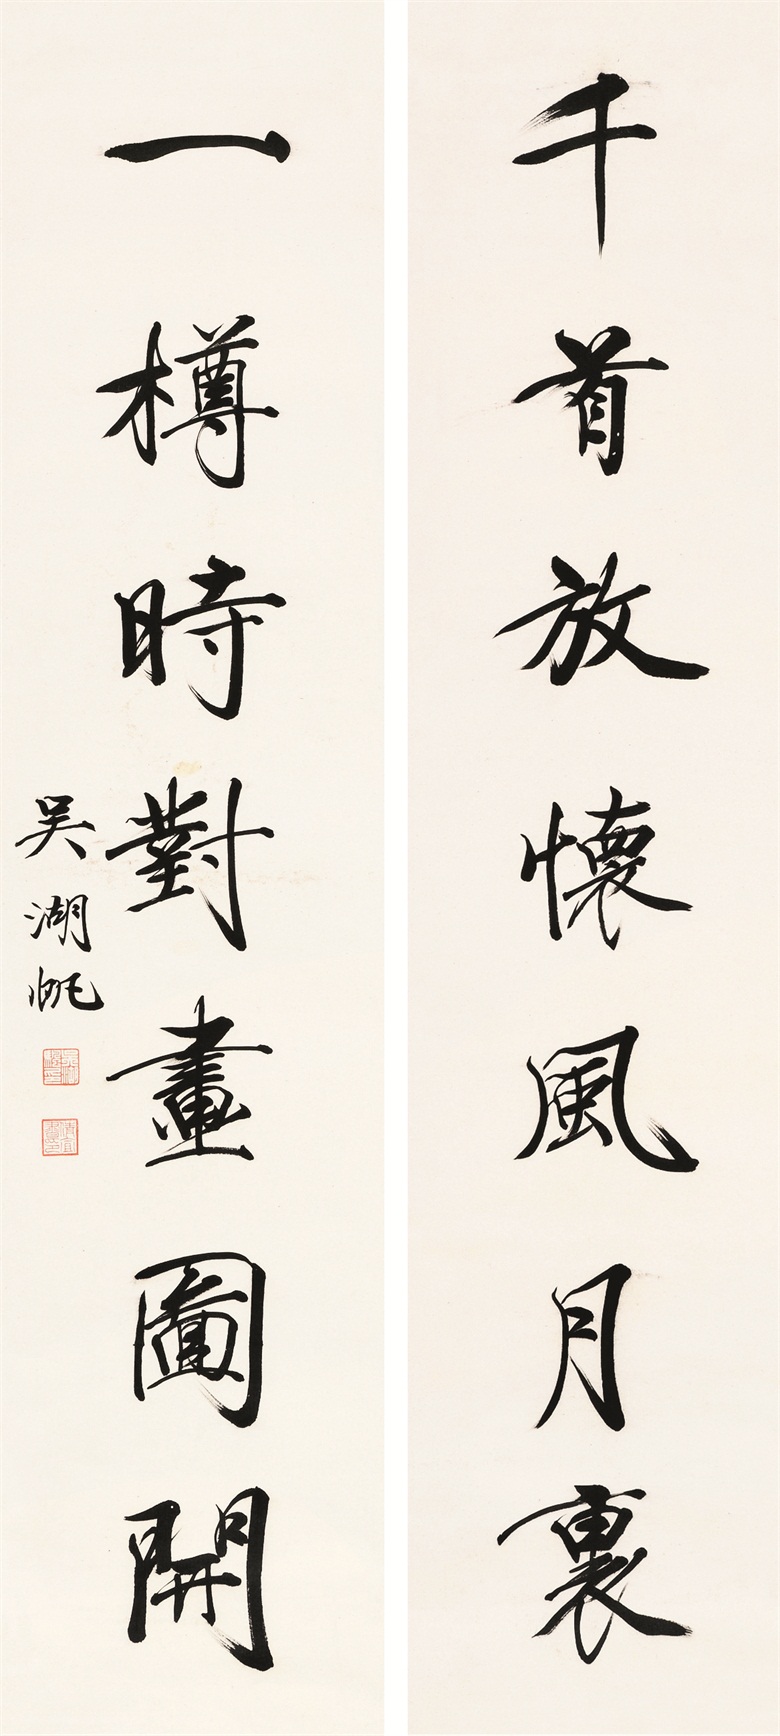 千首放懷風月裏
一樽時對畫圖開
吳湖帆